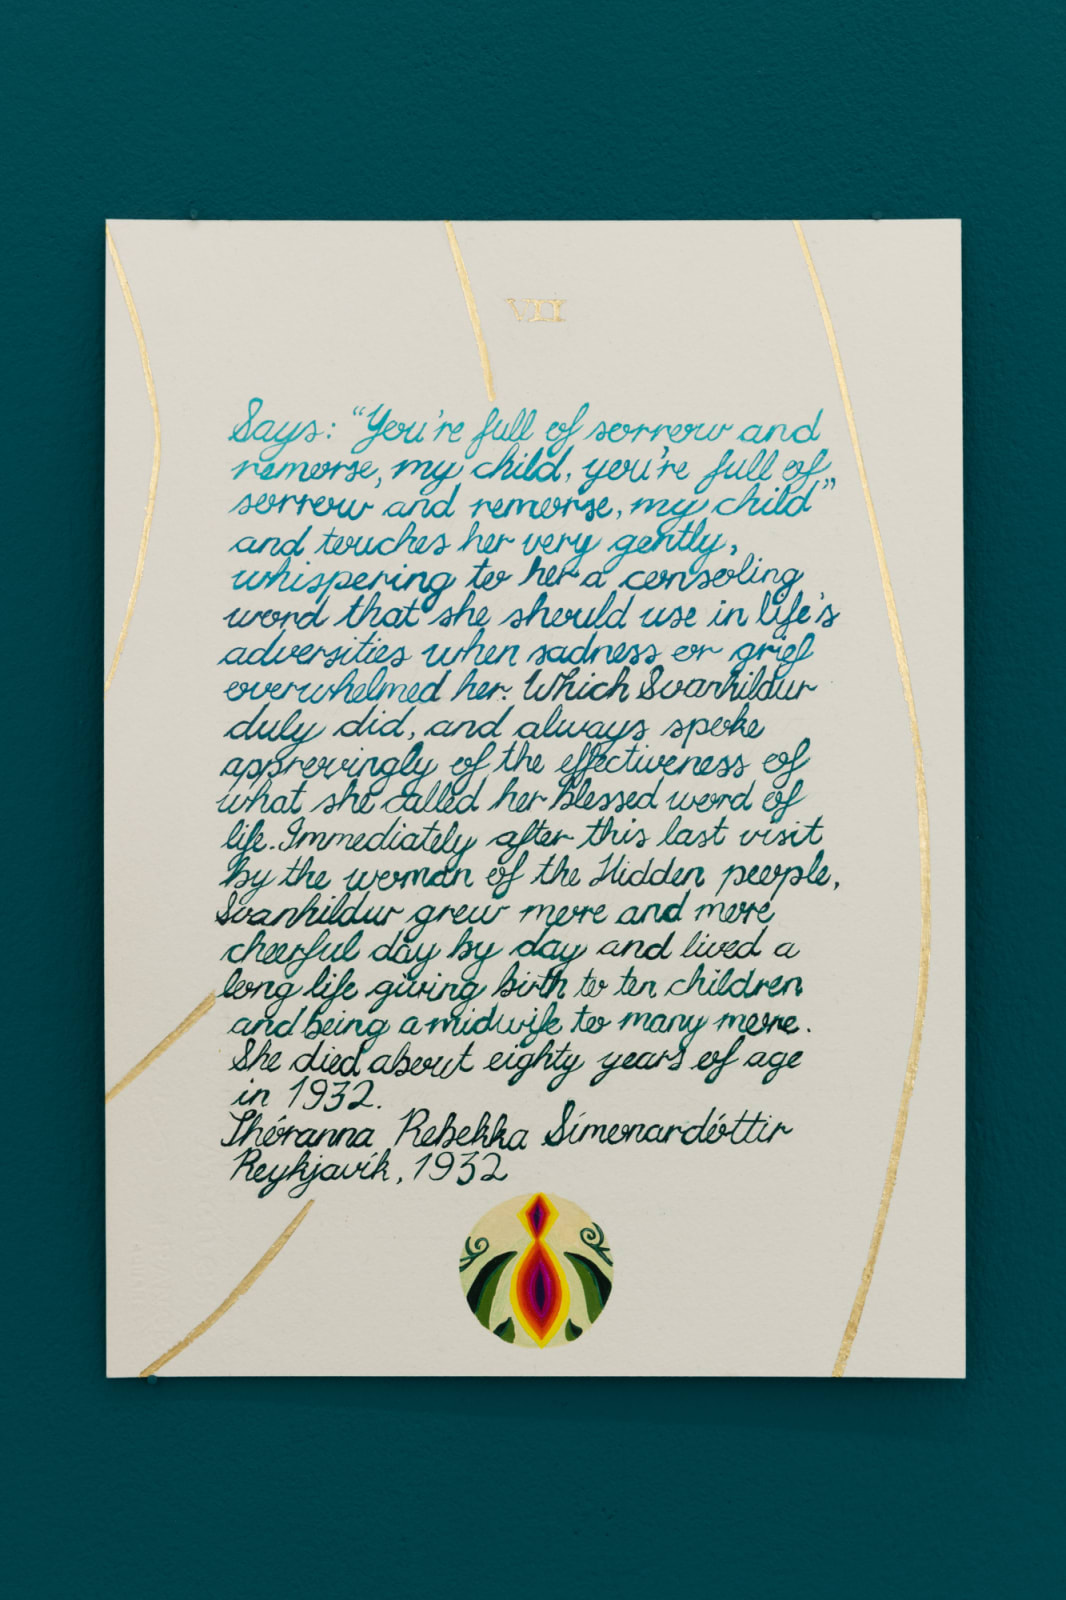 VII
Says: “You're full of sorrow and
remorse, my child, you're full of
sorrow and remorse, my child”
and touches her very gently,
whispering to her a consoling
word that she should use in life's
adversities when sadness or grief
overwhelmed her. Which Svanhildur
duly did, and always spoke
approvingly of the effectiveness of
what she called her blessed word of
life. Immediately after this last visit
by the woman of the Hidden people,
Svanhildur grew more and more
cheerful day by day and lived a
long life giving birth to ten children
and being a midwife to many more.
She died about eighty years of age
in 1932.
Thóranna Rebekka Símonardóttir
Reykjavík, 1932